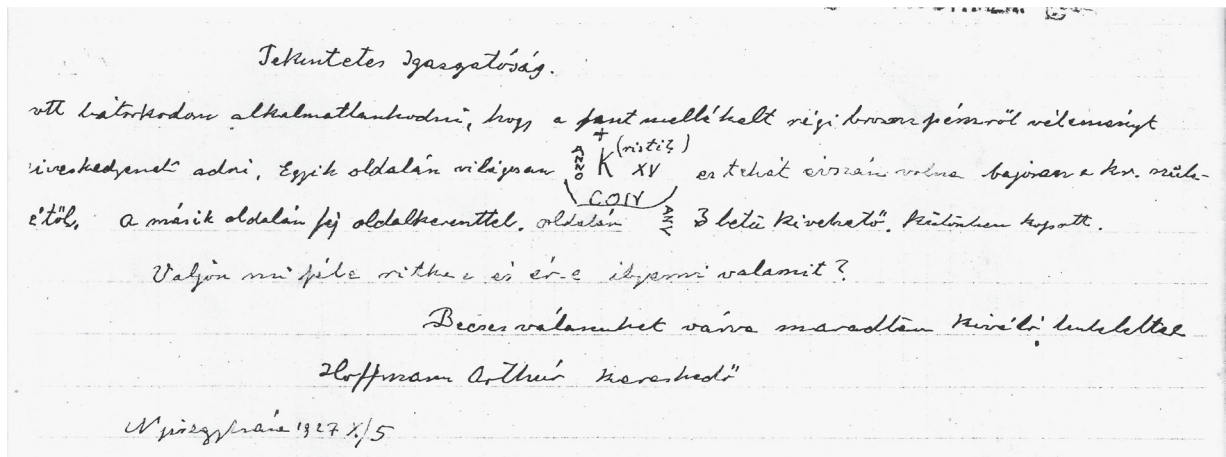 Tekintetes Igazgatóság.
ott bátorkodom alkalmatlankodni, hogy a fent mellékelt régi bronz pénzről véleményt
+
ANNO K (risti?) XV
COIV
ANV
iveskedjenek adni. Egyik oldalán világosan es tehát évszám volna bajosan a kr. szüle-
étől. a másik oldalán fej oldalkerettel. oldalán 3 betű kivehető. Különben kopott.
Valjon mi féle ritka e és ér-e ilyenmi valamit?
Becses válaszukat várva maradtam kiváló tisztelettel
Hoffmann Arthúr kereskedő
Nyíregyháza 1927 X/5